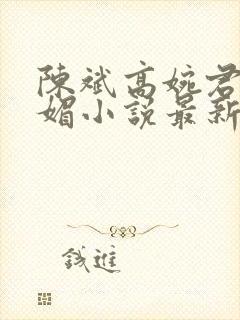 陳斌高婉君
媚小說最新
錢進